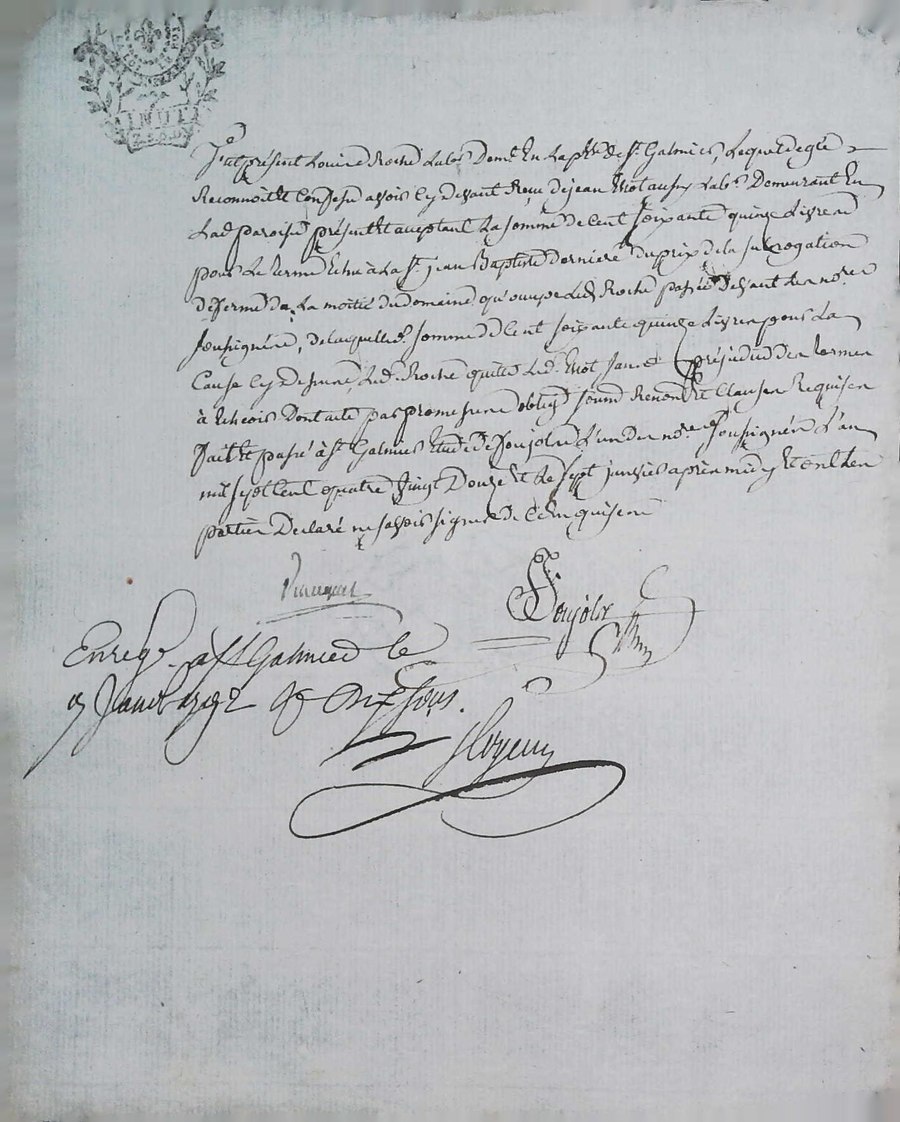 LA LOI LE ROI
Fut présent Louis Roche Lab.r Dem.t En La p.sse de St. Galmier, Lequel de gré
Reconnoit et Confesse avoir cy devant Reçu de jean Lab.r Demeurant En
Lad. paroisse présent et acceptant La somme de Cent soixante quinze Livres
pour Le terme Echu à La St. jean Baptiste dernière du prix de la subrogation
de ferme de La moitié du Domaine qu'occupe Led. Roche passée devant Les no.res
soussignés, de laquelle somme de Cent soixante quinze Livres pour La
Cause cy dessus, Led. Roche quitte Led. sans préjudice des termes
à Echeoir Dont acte par promesse oblig. soum. Renon. et Clauses Requises
fait et passé à St. Galmier Etude de Soujolx L'un des no.res soussignés L'an
mil sept Cent quatre Vingt Douze Et Le sept janvier après midy Et ont Les
parties Declaré ne savoir signer de Ce Enquises
Soujolx
Enreg.é à St Galmier le
9 Janv. 1792 R dix sous.